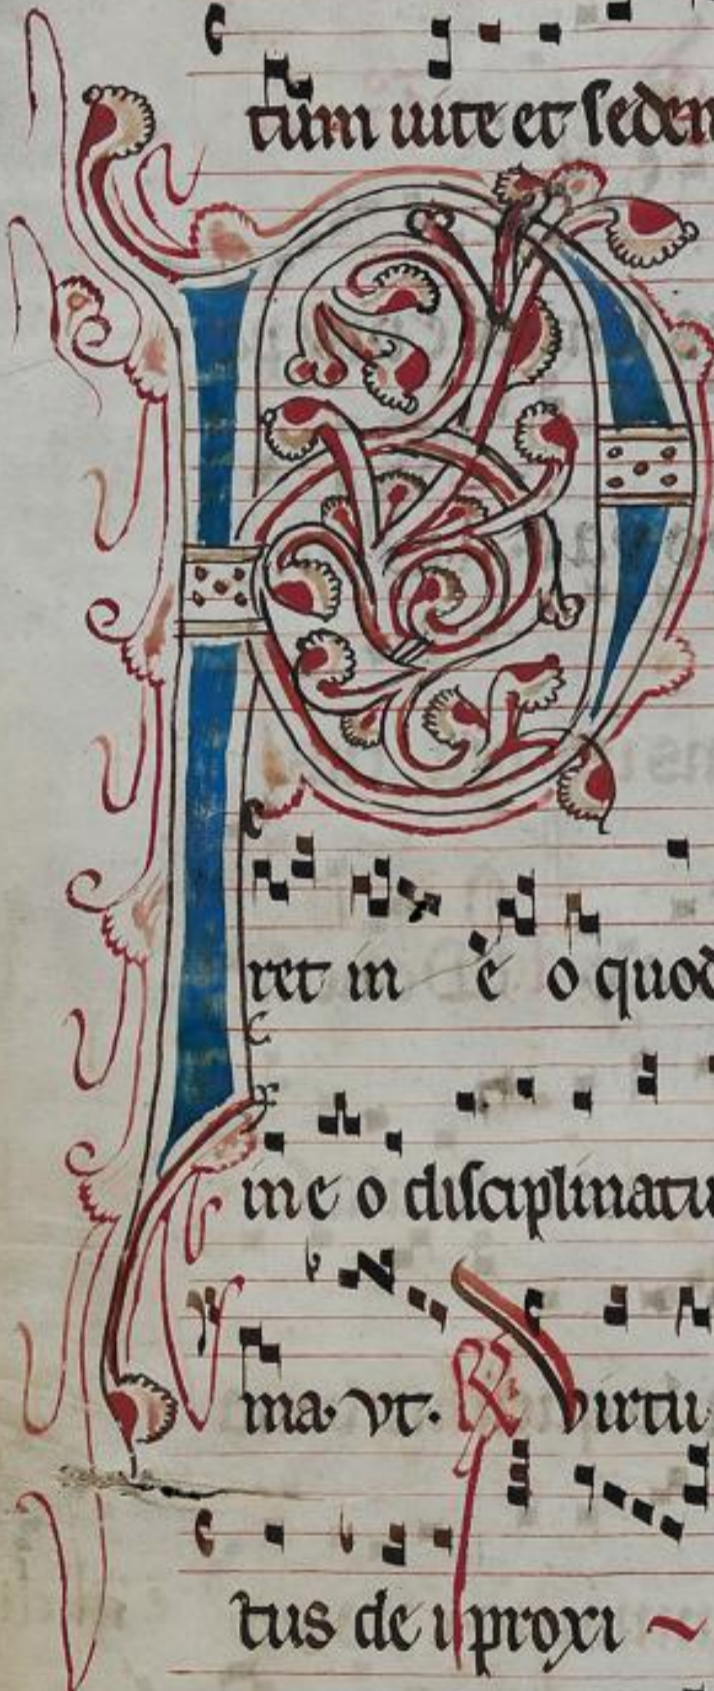 tum uite et seden
P
ret in e o quod
in e o disciplinatu
ma. vt. R Virtu
tus de i proxi